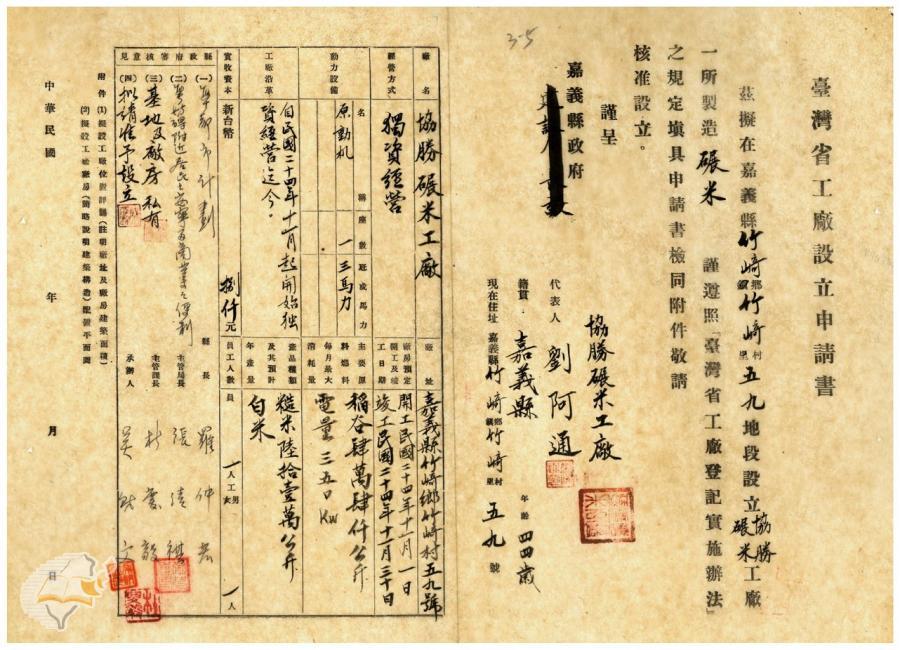 臺灣省工廠設立申請書
茲擬在嘉義縣竹崎鄉鎮竹崎村里五九地段設立協勝碾米工廠
一所製造碾米 謹遵照「臺灣省工廠登記實施辦法」
之規定填具申請書檢同附件敬請
核准設立。
謹呈
嘉義縣政府
3-5
協勝碾米工廠
代表人 劉阿通
年齡 四四歲
籍貫 嘉義縣
現在住址 嘉義縣竹崎鄉鎮竹崎村里五九號
廠名 協勝碾米工廠
廠址 嘉義縣竹崎鄉竹崎村五九號
經營方式 獨資經營
廠房預定開工及竣工日期 開工民國二十四年十一月一日
竣工民國二十四年十一月三十日
動力設備
名稱 座數 匹或馬力
原動机 一 三馬力
主要原料燃料每月最大消耗量 稻谷肆萬肆仟公斤
電量三五〇Kw
工廠沿革 自民國二十四年十一月起開始獨
資經營迄今。
產品種類及其預計年產量 糙米陸拾壹萬公斤
白米
實收資本 新台幣 捌仟元
員工人數 員 一人 工 男 一人 女
縣政府審核意見
(一)
(二)
(三)基地及廠房私有
(四)擬請准予設立
縣長
主管局長
主管課長
承辦人
附件 (1)擬設工廠位置詳圖(註明廠址及廠房建築面積)
(2)擬設工廠廠房(簡略說明建築構造)配置平面圖
中華民國 年 月 日